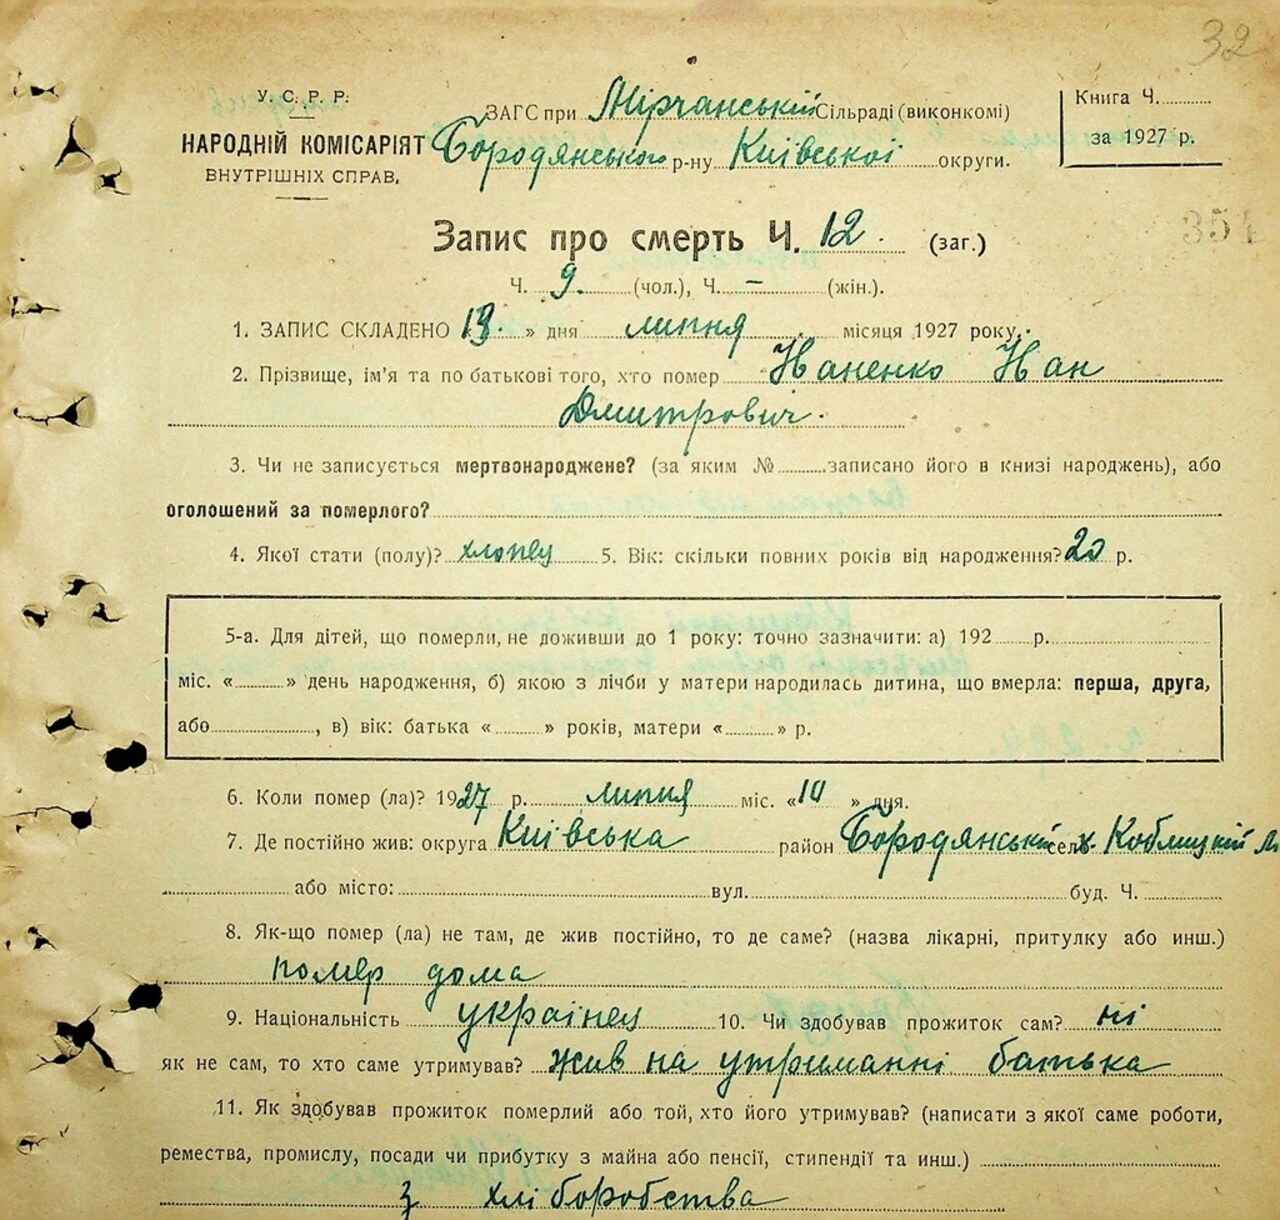 32
У. С. Р. Р.
НАРОДНІЙ КОМІСАРІЯТ
ВНУТРІШНІХ СПРАВ.
ЗАГС при Мірчанській Сільраді (виконкомі)
Бородянського р-ну Київської округи.
Книга Ч.
за 1927 р.
354
Запис про смерть Ч. 12. (заг.)
Ч. 9. (чол.), Ч. – (жін.).
1. ЗАПИС СКЛАДЕНО » дня липня місяця 1927 року.
2. Прізвище, ім'я та по батькові того, хто помер
Дмитрович.
3. Чи не записується мертвонароджене? (за яким № записано його в книзі народжень), або
оголошений за померлого?
4. Якої стати (полу)? хлопец 5. Вік: скільки повних років від народження? 20 р.
5-а. Для дітей, що померли, не доживши до 1 року: точно зазначити: а) 192 р.
міс. « » день народження, б) якою з лічби у матери народилась дитина, що вмерла: перша, друга,
або , в) вік: батька « » років, матери « » р.
6. Коли помер (ла)? 1927 р. липня міс. « » дня.
7. Де постійно жив: округа Київська район Бородянський село х.
або місто: вул. буд. Ч.
8. Як-що помер (ла) не там, де жив постійно, то де саме? (назва лікарні, притулку або инш.)
помер дома
9. Національність українец 10. Чи здобував прожиток сам? ні
як не сам, то хто саме утримував? Жив на утриманні батька
11. Як здобував прожиток померлий або той, хто його утримував? (написати з якої саме роботи,
ремества, промислу, посади чи прибутку з майна або пенсії, стипендії та инш.)
з хліборобства